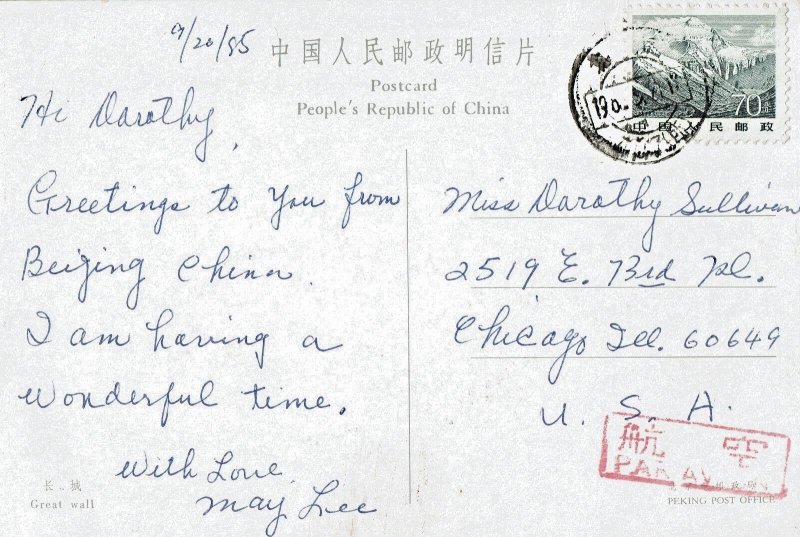 9/20/85
中国人民邮政明信片
Postcard
People's Republic of China
70分
中国人民邮政
Hi Dorothy,
Greetings to you from
Beijing China.
I am having a
wonderful time.
With Love
May Lee
长城
Great wall
Miss Dorothy Sullivan
2519 E. 73rd Pl.
Chicago Ill. 60649
U. S. A.
航空
PAR AV
PEKING POST OFFICE